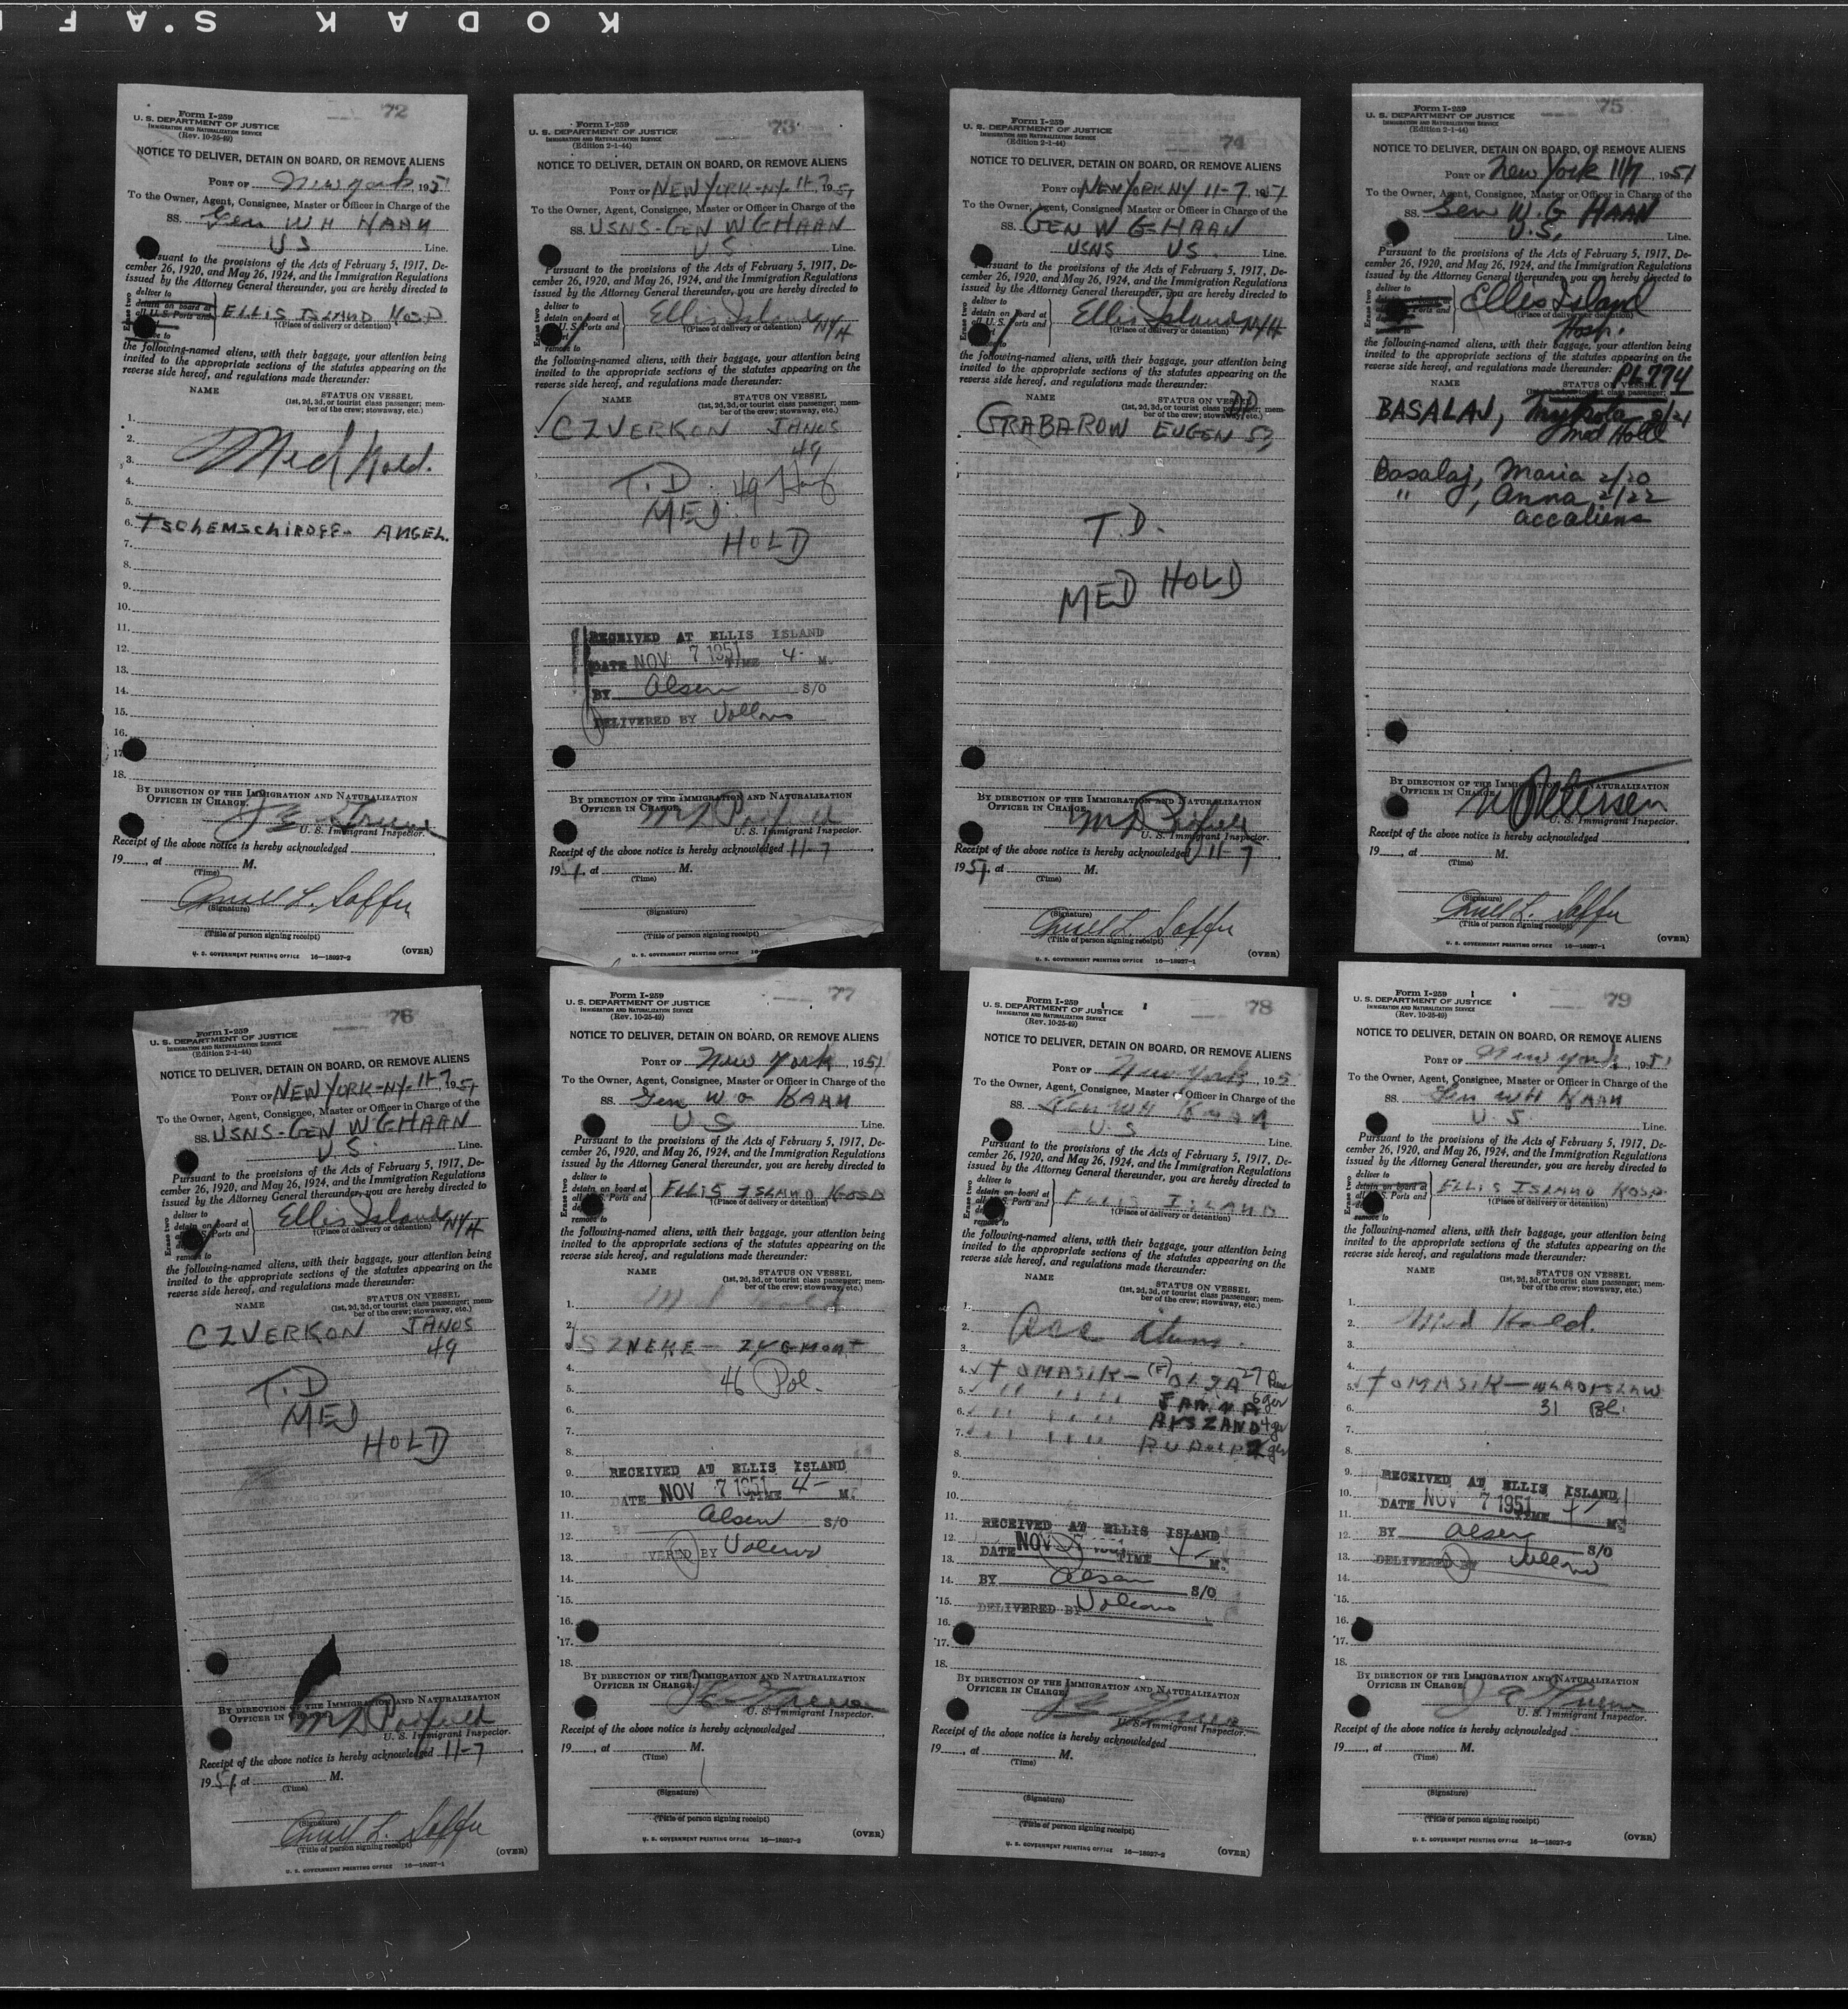 KODAK S.A.F
72
Form I-259
U. S. DEPARTMENT OF JUSTICE
IMMIGRATION AND NATURALIZATION SERVICE
(Rev. 10-25-49)
NOTICE TO DELIVER, DETAIN ON BOARD, OR REMOVE ALIENS
PORT OF New York, 1951
To the Owner, Agent, Consignee, Master or Officer in Charge of the
SS. Gen W H HAAN
U S Line.
Pursuant to the provisions of the Acts of February 5, 1917, De-
cember 26, 1920, and May 26, 1924, and the Immigration Regulations
issued by the Attorney General thereunder, you are hereby directed to
Erase two
detain on board at
all U. S. Ports and
ELLIS ISLAND HOSP
†(Place of delivery or detention)
the following-named aliens, with their baggage, your attention being
invited to the appropriate sections of the statutes appearing on the
reverse side hereof, and regulations made thereunder:
NAME STATUS ON VESSEL
(1st, 2d, 3d, or tourist class passenger; mem-
ber of the crew; stowaway, etc.)
1.
2.
3. Med Hold.
4.
5.
6. TSCHEMSCHIROFF- ANGEL.
7.
8.
9.
10.
11.
12.
13.
14.
15.
16.
17.
18.
BY DIRECTION OF THE IMMIGRATION AND NATURALIZATION
OFFICER IN CHARGE.
U. S. Immigrant Inspector.
Receipt of the above notice is hereby acknowledged
19, at M.
(Time)
L. Saffer
(Signature)
(Title of person signing receipt)
(OVER)
U. S. GOVERNMENT PRINTING OFFICE 16—18927-2
73
Form I-259
U. S. DEPARTMENT OF JUSTICE
IMMIGRATION AND NATURALIZATION SERVICE
(Edition 2-1-44)
NOTICE TO DELIVER, DETAIN ON BOARD, OR REMOVE ALIENS
PORT OF NEW YORK-NY. 11-7, 1951
To the Owner, Agent, Consignee, Master or Officer in Charge of the
SS. USNS-GEN W G HAAN
U S Line.
Pursuant to the provisions of the Acts of February 5, 1917, De-
cember 26, 1920, and May 26, 1924, and the Immigration Regulations
issued by the Attorney General thereunder, you are hereby directed to
Erase two
deliver to
detain on board at
all U. S. Ports and
remove to
Ellis Island NYH
†(Place of delivery or detention)
the following-named aliens, with their baggage, your attention being
invited to the appropriate sections of the statutes appearing on the
reverse side hereof, and regulations made thereunder:
NAME STATUS ON VESSEL
(1st, 2d, 3d, or tourist class passenger; mem-
ber of the crew; stowaway, etc.)
CZVERKON JANOS
49
T.D 49
MED
HOLD
RECEIVED AT ELLIS ISLAND
DATE NOV 7 1951 TIME 4- M.
BY Olsen S/O
DELIVERED BY
BY DIRECTION OF THE IMMIGRATION AND NATURALIZATION
OFFICER IN CHARGE.
U. S. Immigrant Inspector.
Receipt of the above notice is hereby acknowledged 11-7
1951, at M.
(Time)
(Signature)
(Title of person signing receipt)
U. S. GOVERNMENT PRINTING OFFICE 16
74
Form I-259
U. S. DEPARTMENT OF JUSTICE
IMMIGRATION AND NATURALIZATION SERVICE
(Edition 2-1-44)
NOTICE TO DELIVER, DETAIN ON BOARD, OR REMOVE ALIENS
PORT OF NEW YORK NY 11-7, 1951
To the Owner, Agent, Consignee, Master or Officer in Charge of the
SS. GEN W G HAAN
USNS US. Line.
Pursuant to the provisions of the Acts of February 5, 1917, De-
cember 26, 1920, and May 26, 1924, and the Immigration Regulations
issued by the Attorney General thereunder, you are hereby directed to
Erase two
deliver to
detain on board at
all U. S. Ports and
remove to
Ellis Island NYH
†(Place of delivery or detention)
the following-named aliens, with their baggage, your attention being
invited to the appropriate sections of the statutes appearing on the
reverse side hereof, and regulations made thereunder:
NAME STATUS ON VESSEL
(1st, 2d, 3d, or tourist class passenger; mem-
ber of the crew; stowaway, etc.)
GRABAROW EUGEN 53
T.D.
MED HOLD
BY DIRECTION OF THE IMMIGRATION AND NATURALIZATION
OFFICER IN CHARGE.
U. S. Immigrant Inspector.
Receipt of the above notice is hereby acknowledged 11-7
1951, at M.
(Time)
(Signature)
L. Saffer
(Title of person signing receipt)
(OVER)
U. S. GOVERNMENT PRINTING OFFICE 16—18927-1
75
Form I-259
U. S. DEPARTMENT OF JUSTICE
IMMIGRATION AND NATURALIZATION SERVICE
(Edition 2-1-44)
NOTICE TO DELIVER, DETAIN ON BOARD, OR REMOVE ALIENS
PORT OF New York 11/7, 1951
To the Owner, Agent, Consignee, Master or Officer in Charge of the
SS. Gen W. G HAAN
U.S. Line.
Pursuant to the provisions of the Acts of February 5, 1917, De-
cember 26, 1920, and May 26, 1924, and the Immigration Regulations
issued by the Attorney General thereunder, you are hereby directed to
Erase two
deliver to
Ellis Island
†(Place of delivery or detention)
Hosp.
the following-named aliens, with their baggage, your attention being
invited to the appropriate sections of the statutes appearing on the
reverse side hereof, and regulations made thereunder: PL774
NAME STATUS ON VESSEL
BASALAJ, Mykola 2/21
Med Hold
Basalaj, Maria 2/20
" , Anna 2/22
acc aliens
BY DIRECTION OF THE IMMIGRATION AND NATURALIZATION
OFFICER IN CHARGE.
Petersen
U. S. Immigrant Inspector.
Receipt of the above notice is hereby acknowledged
19, at M.
(Time)
(Signature)
L. Saffer
(Title of person signing receipt)
(OVER)
U. S. GOVERNMENT PRINTING OFFICE 16—18927-1
76
Form I-259
U. S. DEPARTMENT OF JUSTICE
IMMIGRATION AND NATURALIZATION SERVICE
(Edition 2-1-44)
NOTICE TO DELIVER, DETAIN ON BOARD, OR REMOVE ALIENS
PORT OF NEW YORK-NY. 11-7, 1951
To the Owner, Agent, Consignee, Master or Officer in Charge of the
SS. USNS-GEN W G HAAN
U.S. Line.
Pursuant to the provisions of the Acts of February 5, 1917, De-
cember 26, 1920, and May 26, 1924, and the Immigration Regulations
issued by the Attorney General thereunder, you are hereby directed to
Erase two
deliver to
detain on board at
all U. S. Ports and
remove to
Ellis Island NYH
†(Place of delivery or detention)
the following-named aliens, with their baggage, your attention being
invited to the appropriate sections of the statutes appearing on the
reverse side hereof, and regulations made thereunder:
NAME STATUS ON VESSEL
(1st, 2d, 3d, or tourist class passenger; mem-
ber of the crew; stowaway, etc.)
CZVERKON JANOS
49
T.D
MED
HOLD
BY DIRECTION OF THE IMMIGRATION AND NATURALIZATION
OFFICER IN CHARGE.
U. S. Immigrant Inspector.
Receipt of the above notice is hereby acknowledged 11-7
1951, at M.
(Time)
(Signature)
L. Saffer
(Title of person signing receipt)
(OVER)
U. S. GOVERNMENT PRINTING OFFICE 16—18927-1
77
Form I-259
U. S. DEPARTMENT OF JUSTICE
IMMIGRATION AND NATURALIZATION SERVICE
(Rev. 10-25-49)
NOTICE TO DELIVER, DETAIN ON BOARD, OR REMOVE ALIENS
PORT OF New York, 1951
To the Owner, Agent, Consignee, Master or Officer in Charge of the
SS. Gen W G HAAN
U S Line.
Pursuant to the provisions of the Acts of February 5, 1917, De-
cember 26, 1920, and May 26, 1924, and the Immigration Regulations
issued by the Attorney General thereunder, you are hereby directed to
Erase two
deliver to
detain on board at
all U. S. Ports and
remove to
ELLIS ISLAND HOSP
†(Place of delivery or detention)
the following-named aliens, with their baggage, your attention being
invited to the appropriate sections of the statutes appearing on the
reverse side hereof, and regulations made thereunder:
NAME STATUS ON VESSEL
(1st, 2d, 3d, or tourist class passenger; mem-
ber of the crew; stowaway, etc.)
1. Med Hold
2.
3. SZNEKE- ZYGMONT
4.
5. 46 Pol.
6.
7.
8.
9. RECEIVED AT ELLIS ISLAND
10. DATE NOV 7 1951 TIME 4- M.
11. BY Olsen S/O
12.
13. DELIVERED BY
14.
15.
16.
17.
18.
BY DIRECTION OF THE IMMIGRATION AND NATURALIZATION
OFFICER IN CHARGE.
U. S. Immigrant Inspector.
Receipt of the above notice is hereby acknowledged
19, at M.
(Time)
(Signature)
(Title of person signing receipt)
(OVER)
U. S. GOVERNMENT PRINTING OFFICE 16—18927-2
78
Form I-259
U. S. DEPARTMENT OF JUSTICE
IMMIGRATION AND NATURALIZATION SERVICE
(Rev. 10-25-49)
NOTICE TO DELIVER, DETAIN ON BOARD, OR REMOVE ALIENS
PORT OF New York, 195
To the Owner, Agent, Consignee, Master or Officer in Charge of the
SS. Gen WH HAAN
U.S Line.
Pursuant to the provisions of the Acts of February 5, 1917, De-
cember 26, 1920, and May 26, 1924, and the Immigration Regulations
issued by the Attorney General thereunder, you are hereby directed to
Erase two
deliver to
detain on board at
all U. S. Ports and
remove to
ELLIS ISLAND
†(Place of delivery or detention)
the following-named aliens, with their baggage, your attention being
invited to the appropriate sections of the statutes appearing on the
reverse side hereof, and regulations made thereunder:
NAME STATUS ON VESSEL
(1st, 2d, 3d, or tourist class passenger; mem-
ber of the crew; stowaway, etc.)
1.
2. Acc aliens.
3.
4. TOMASIK- (F) OLGA 27
5. " " " " JANINA 6 ger
6. " " " " 4 ger
7. " " " " RUDOLF 2 ger
8.
9.
10.
11. RECEIVED AT ELLIS ISLAND
12. DATE NOV 7 TIME 4- M.
13.
14. BY Olsen S/O
15. DELIVERED BY
16.
17.
18.
BY DIRECTION OF THE IMMIGRATION AND NATURALIZATION
OFFICER IN CHARGE.
U. S. Immigrant Inspector.
Receipt of the above notice is hereby acknowledged
19, at M.
(Time)
(Signature)
(Title of person signing receipt)
(OVER)
U. S. GOVERNMENT PRINTING OFFICE 16—18927-2
79
Form I-259
U. S. DEPARTMENT OF JUSTICE
IMMIGRATION AND NATURALIZATION SERVICE
(Rev. 10-25-49)
NOTICE TO DELIVER, DETAIN ON BOARD, OR REMOVE ALIENS
PORT OF New York, 1951
To the Owner, Agent, Consignee, Master or Officer in Charge of the
SS. Gen WH HAAN
U. S Line.
Pursuant to the provisions of the Acts of February 5, 1917, De-
cember 26, 1920, and May 26, 1924, and the Immigration Regulations
issued by the Attorney General thereunder, you are hereby directed to
Erase two
deliver to
detain on board at
all U. S. Ports and
remove to
ELLIS ISLAND HOSP.
†(Place of delivery or detention)
the following-named aliens, with their baggage, your attention being
invited to the appropriate sections of the statutes appearing on the
reverse side hereof, and regulations made thereunder:
NAME STATUS ON VESSEL
(1st, 2d, 3d, or tourist class passenger; mem-
ber of the crew; stowaway, etc.)
1.
2. Med Hold.
3.
4.
5. TOMASIK- WLADYSLAW
6. 31 Pl.
7.
8.
9. RECEIVED AT ELLIS ISLAND
10. DATE NOV 7 1951 TIME 4- M.
11.
12. BY Olsen S/O
13. DELIVERED BY
14.
15.
16.
17.
18.
BY DIRECTION OF THE IMMIGRATION AND NATURALIZATION
OFFICER IN CHARGE.
U. S. Immigrant Inspector.
Receipt of the above notice is hereby acknowledged
19, at M.
(Time)
(Signature)
(Title of person signing receipt)
(OVER)
U. S. GOVERNMENT PRINTING OFFICE 16—18927-2